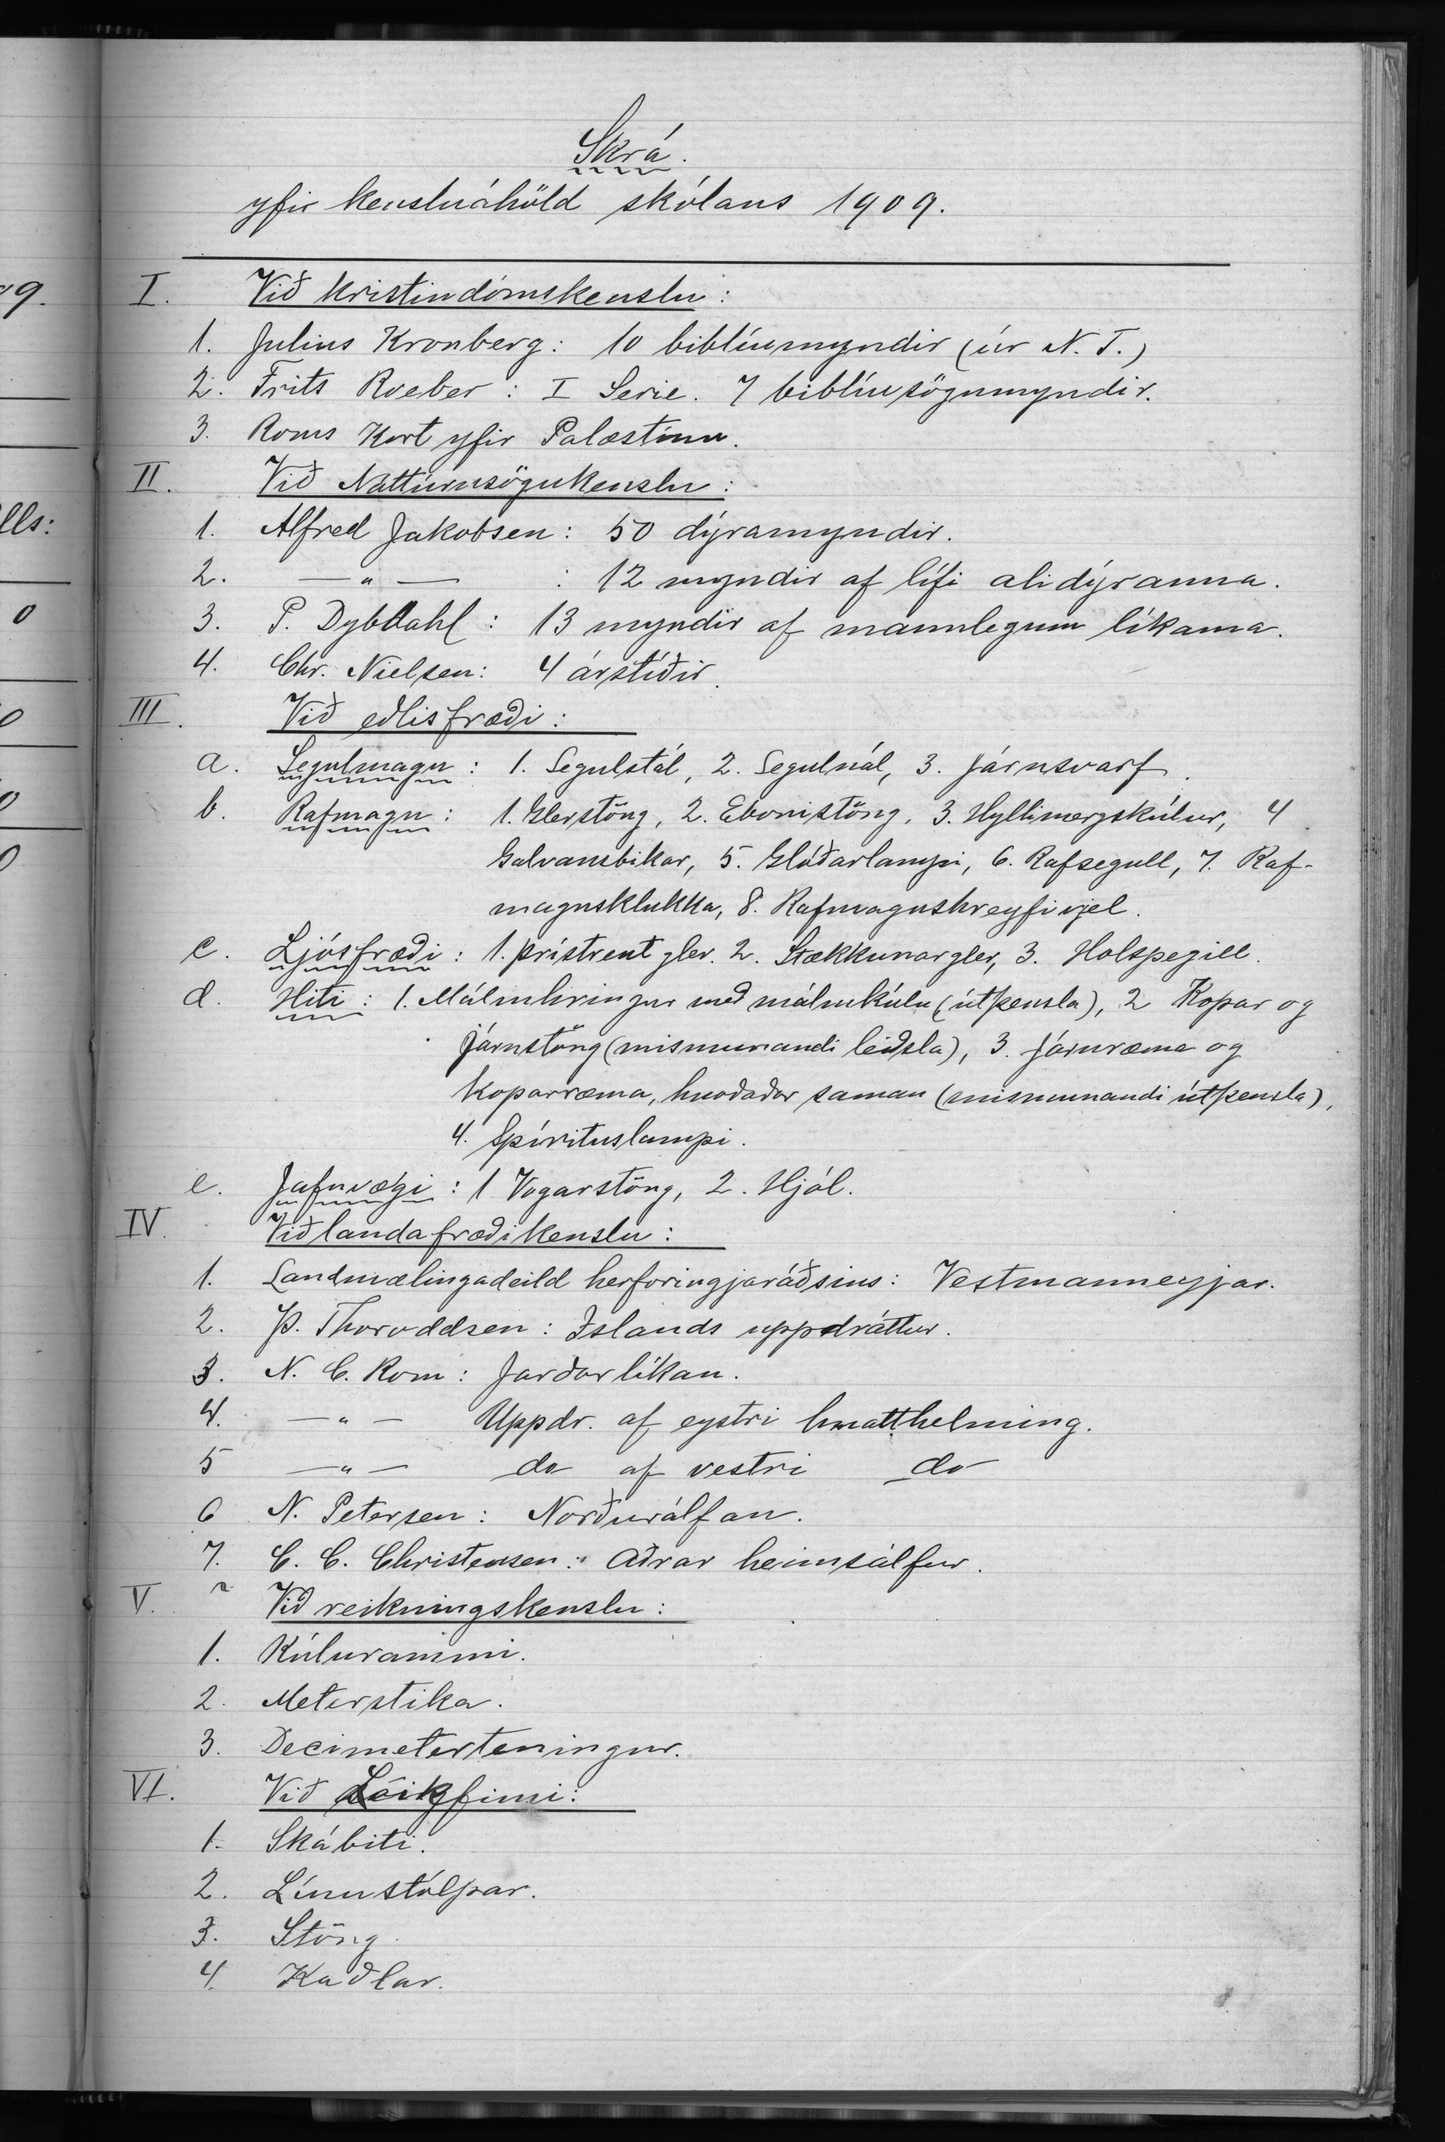 Skrá.
yfir kensluáhöld skólans 1909.
I. Við kristindómskenslu:
1. Julius Kronberg: 10 biblíumyndir (úr N. T.)
2. Frits Roeber: I Serie. 7 biblíusögumyndir.
3. Roms Kort yfir Palæstínu.
II. Við Náttúrusögukenslu:
1. Alfred Jakobsen: 50 dýramyndir.
2. —„— : 12 myndir af lífi alidýranna.
3. P. Dybdahl: 13 myndir af mannlegum líkama.
4. Chr. Nielsen: 4 árstíðir.
III. Við eðlisfræði:
a. Segulmagn: 1. Segulstál, 2. Segulnál, 3. Járnsvarf.
b. Rafmagn: 1. Glerstöng, 2. Ebonistöng, 3. Hyllimergskúlur, 4
Galvansbikar, 5. Glóðarlampi, 6. Rafsegull, 7. Raf-
magnsklukka, 8. Rafmagnshreyfivjel.
c. Ljósfræði: 1. Þrístrent gler. 2. Stækkunargler, 3. Holspegill.
d. Hiti: 1. Málmhringur með málmkúlu (útþensla), 2 Kopar og
járnstöng (mismunandi leiðsla), 3. Járnræma og
koparræma, hnoðaðar saman (mismunandi útþensla),
4. Spírituslampi.
e. Jafnvægi: 1 Vogarstöng, 2. Hjól.
IV. Við landafræðikenslu:
1. Landmælingadeild herforingjaráðsins: Vestmanneyjar.
2. Þ. Thoroddsen: Islands uppdráttur.
3. N. C. Rom: Jarðarlíkan.
4. —„— Uppdr. af eystri hnatthelming.
5 —„— do af vestri do
6 N. Petersen: Norðurálfan.
7. C. C. Christensen: Aðrar heimsálfur.
V. Við reikningskenslu:
1. Kúlurammi.
2. Meterstika.
3. Decimeterteningur.
VI. Við Leikfimi:
1. Skábiti.
2. Línustólpar.
3. Stöng.
4. Kaðlar.